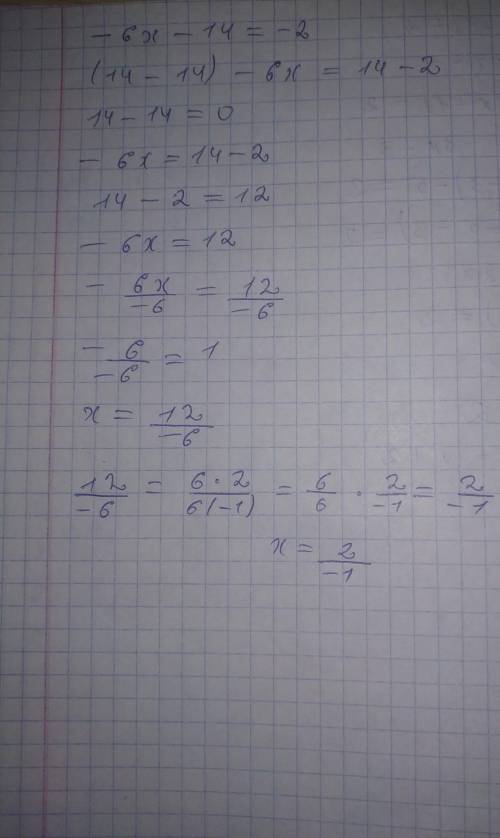 - 6x - 14 = -2
(14 - 14) - 6x = 14 - 2
14 - 14 = 0
- 6x = 14 - 2
14 - 2 = 12
- 6x = 12
- 6x/-6 = 12/-6
- 6/-6 = 1
x = 12/-6
12/-6 = 6·2/6(-1) = 6/6 · 2/-1 = 2/-1
x = 2/-1